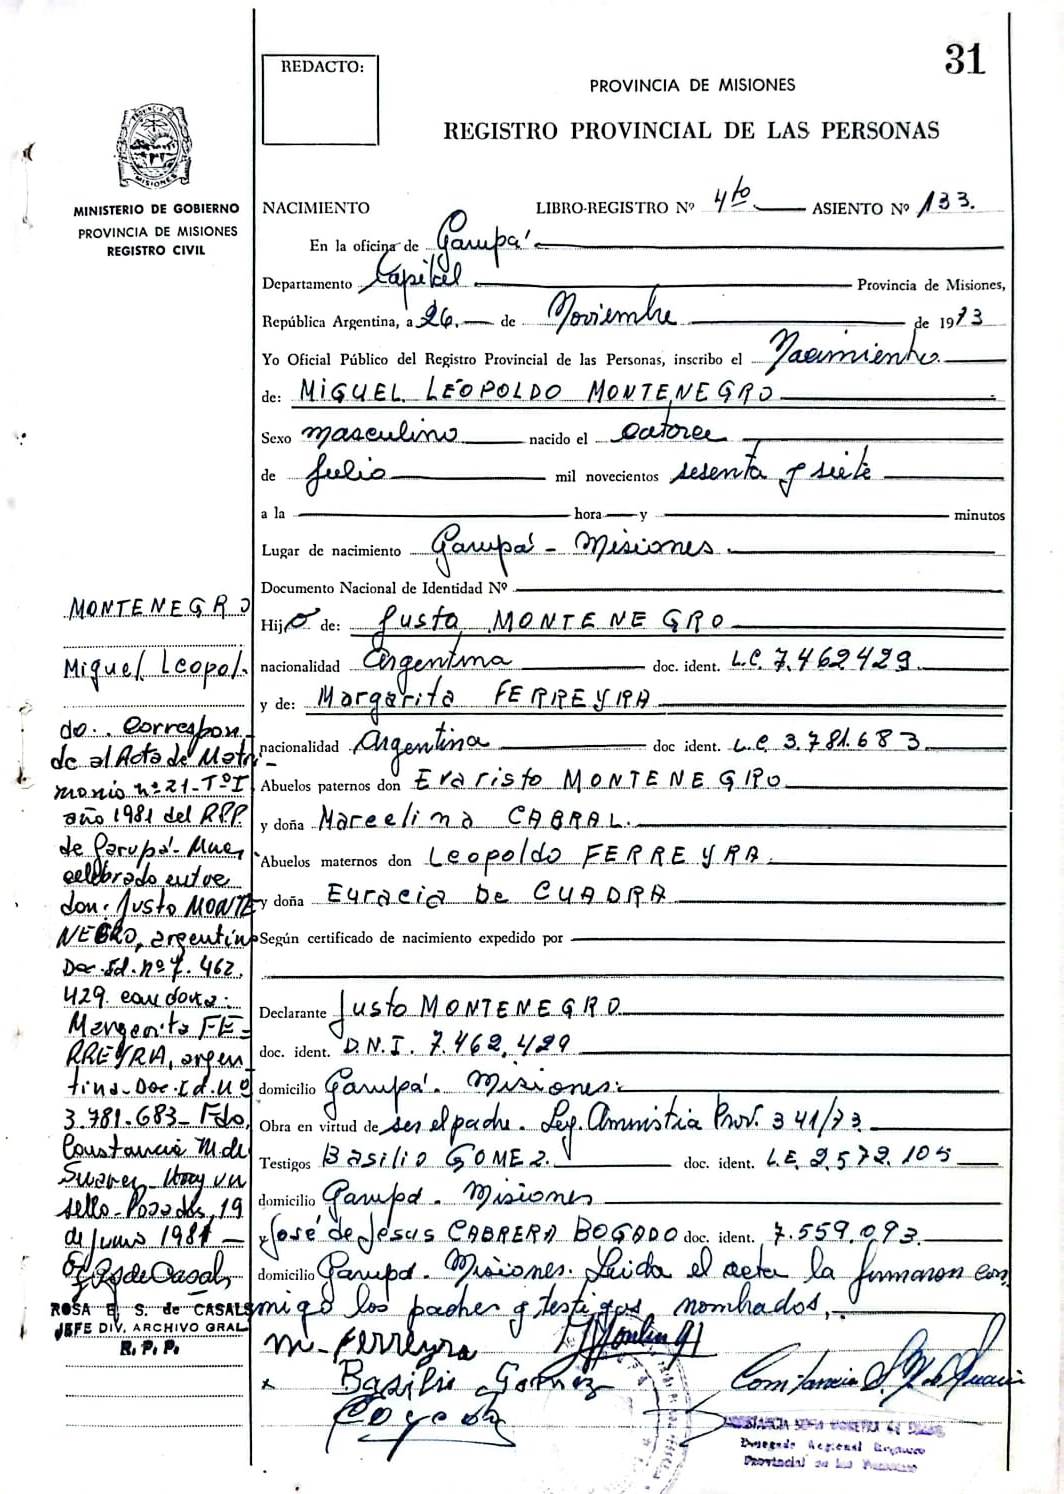 31
REDACTO:
PROVINCIA DE MISIONES
REGISTRO PROVINCIAL DE LAS PERSONAS
MINISTERIO DE GOBIERNO
PROVINCIA DE MISIONES
REGISTRO CIVIL
NACIMIENTO LIBRO-REGISTRO Nº 4to ASIENTO Nº 133.
En la oficina de Garupá
Departamento Capital Provincia de Misiones,
República Argentina, a 26. de Noviembre de 1973
Yo Oficial Público del Registro Provincial de las Personas, inscribo el Nacimiento
de: MIGUEL LEOPOLDO MONTENEGRO
Sexo masculino nacido el catorce
de Julio mil novecientos sesenta y siete
a la hora y minutos
Lugar de nacimiento Garupá - Misiones
Documento Nacional de Identidad Nº
Hijo de: Justo MONTENEGRO
nacionalidad Argentina doc. ident. L.C. 7.462429
y de: Margarita FERREYRA
nacionalidad Argentina doc ident. L.C. 3.781.683
Abuelos paternos don Evaristo MONTENEGRO
y doña Marcelina CABRAL.
Abuelos maternos don Leopoldo FERREYRA
y doña Euracia De CUADRA
Según certificado de nacimiento expedido por
Declarante Justo MONTENEGRO
doc. ident. D.N.I. 7.462.429
domicilio Garupá. Misiones.
Obra en virtud de ser el padre. Ley. Amnistia Prov. 341/73
Testigos Basilio GOMEZ. doc. ident. L.E. 2.572.105
domicilio Garupá. Misiones
y José de Jesus CABRERA BOGADO doc. ident. 7.559.093.
domicilio Garupá. Misiones. Leida el acta la firmaron con
migo los padres y testigos nombrados,
M. Ferreyra
Basilio Gomez
MONTENEGRO
Miguel Leopol.
do. Correspon
de al Acta de Matri-
monio nº 21-Tº I
año 1981 del RPP.
de Garupá-
celebrado entre
don: Justo MONTE
NEGRO, argentino
Doc. Id. nº 7.462.
429 con doña:
Margarita FE-
RREYRA, argen
tina-Doc. Id. Nº
3.781.683- Fdo,
Constancia M. de
Suarez- Hay un
sello- Posadas, 19
de junio 1981
ROSA E. S. de CASALS
JEFE DIV. ARCHIVO GRAL
R. P. P.
Delegado Regional Registro
Provincial de las Personas